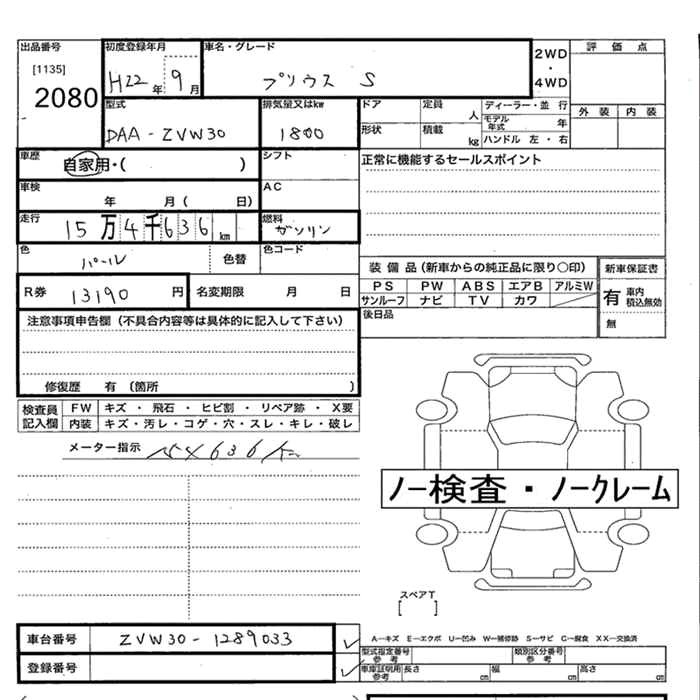 出品番号 初度登録年月 車名・グレード 2WD・4WD 評価点
[1135]
2080 H22年 9月 プリウス S
外装 内装
型式 排気量又はkw ドア 定員 人 ディーラー・並行
DAA-ZVW30 1800 形状 積載 kg モデル年式 年
ハンドル 左・右
車歴 自家用・( ) シフト 正常に機能するセールスポイント
車検 年 月( 日) AC
走行 15万4千636km 燃料 ガソリン
色 パール 色替 色コード 装備品(新車からの純正品に限り○印) 新車保証書
PS PW ABS エアB アルミW
R券 13190円 名変期限 月 日 サンルーフ ナビ TV カワ 有 車内積込無効
後日品 無
注意事項申告欄(不具合内容等は具体的に記入して下さい)
修復歴 有(箇所 )
検査員記入欄 FW キズ・飛石・ヒビ割・リペア跡・X要
内装 キズ・汚レ・コゲ・穴・スレ・キレ・破レ
メーター指示 154636km
ノー検査・ノークレーム
スペアT
[ ]
車台番号 ZVW30-1289033 ✓ A−キズ E−エクボ U−凹み W−補修跡 S−サビ C−腐食 XX−交換済
型式指定番号 参考 類別区分番号 参考
登録番号 ✓ 車庫証明用 参考 長さ cm 幅 cm 高さ cm